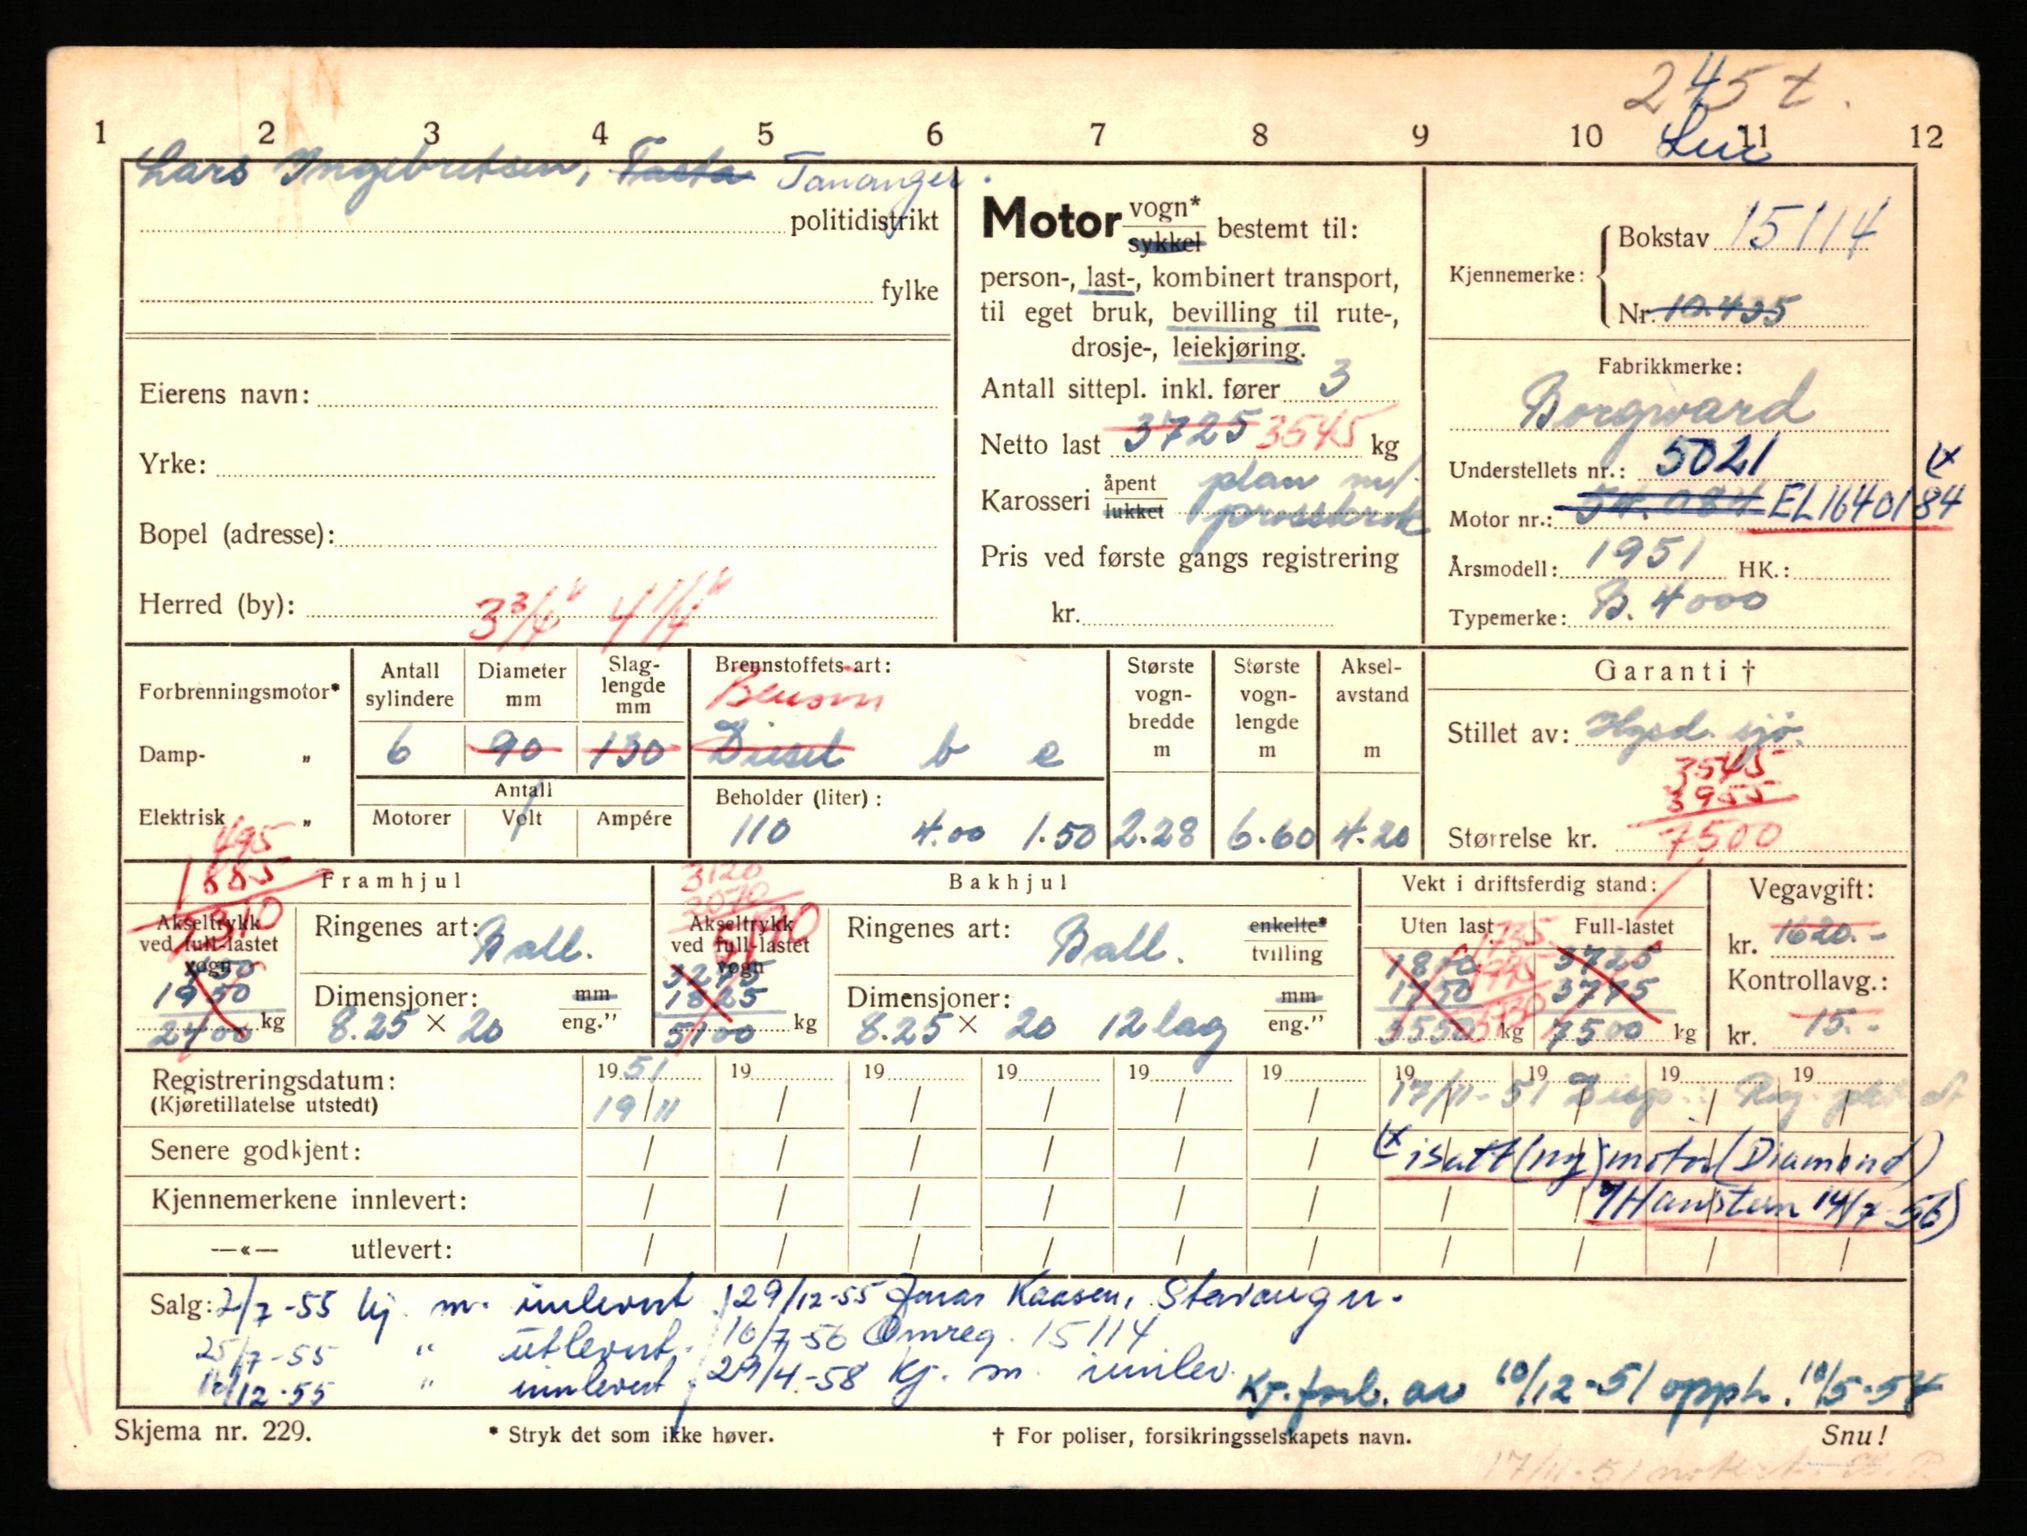 245 t.
1 2 3 4 5 6 7 8 9 10 11 12
Lars Ingebretsen, Tasta Tananger.
politidistrikt
fylke
Eierens navn:
Yrke:
Bopel (adresse):
Herred (by):
3 3/4" 4 1/4"
Motor vogn* sykkel bestemt til:
person-, last-, kombinert transport,
til eget bruk, bevilling til rute-,
drosje-, leiekjøring.
Antall sittepl. inkl. fører 3
Netto last 3725 3545 kg
Karosseri åpent lukket plan m/
Pris ved første gangs registrering
kr.
Kjennemerke: Bokstav 15114
Nr. 10.435
Fabrikkmerke:
Borgward
Understellets nr.: 5021
Motor nr.: 54.084 EL1640184
Årsmodell: 1951 HK.:
Typemerke: B. 4000
Forbrenningsmotor* Antall sylindere Diameter mm Slag-lengde mm
Damp- " 6 90 130
Elektrisk " Antall
Motorer Volt Ampére
Brennstoffets art:
Bensin
Diesel b e
Beholder (liter):
110 4.00 1.50
Største vogn-bredde m 2.28
Største vogn-lengde m 6.60
Aksel-avstand m 4.20
Garanti †
Stillet av: Hgsd. sjø.
3545
3955
Størrelse kr. 7500
Framhjul
495
1885
Akseltrykk ved full-lastet vogn
1950
2400 kg
Ringenes art: Ball.
Dimensjoner: mm eng."
8.25 × 20
Bakhjul
3120
2070
Akseltrykk ved full-lastet vogn
3275
1825
5100 kg
Ringenes art: Ball. enkelte* tvilling
Dimensjoner: mm eng."
8.25 × 20 12 lag
Vekt i driftsferdig stand:
Uten last Full-lastet
1800 1735 3725
1750 1995 3775
3550 3730 kg 7500 kg
Vegavgift:
kr. 1620.-
Kontrollavg.:
kr. 15.-
Registreringsdatum: 1951 19 19 19 19 19 19 19 19 19
(Kjøretillatelse utstedt) 19/11 17/11-51 Disp.: Reg.
Senere godkjent: (x isatt (ny) motor (Diamond)
Kjennemerkene innlevert: 14/7-56)
—«— utlevert:
Salg: 2/7-55 kj. m. innlevert 29/12-55 Jonas Kaasen, Stavanger.
25/7-55 " utlevert. 10/7-56 Omreg. 15114
12/12-55 " innlevert 29/4-58 Kj. m. innlev.
Kj.forb. av 10/12-51 opph. 10/5-54
Skjema nr. 229. * Stryk det som ikke høver. † For poliser, forsikringsselskapets navn. Snu!
17/11-51